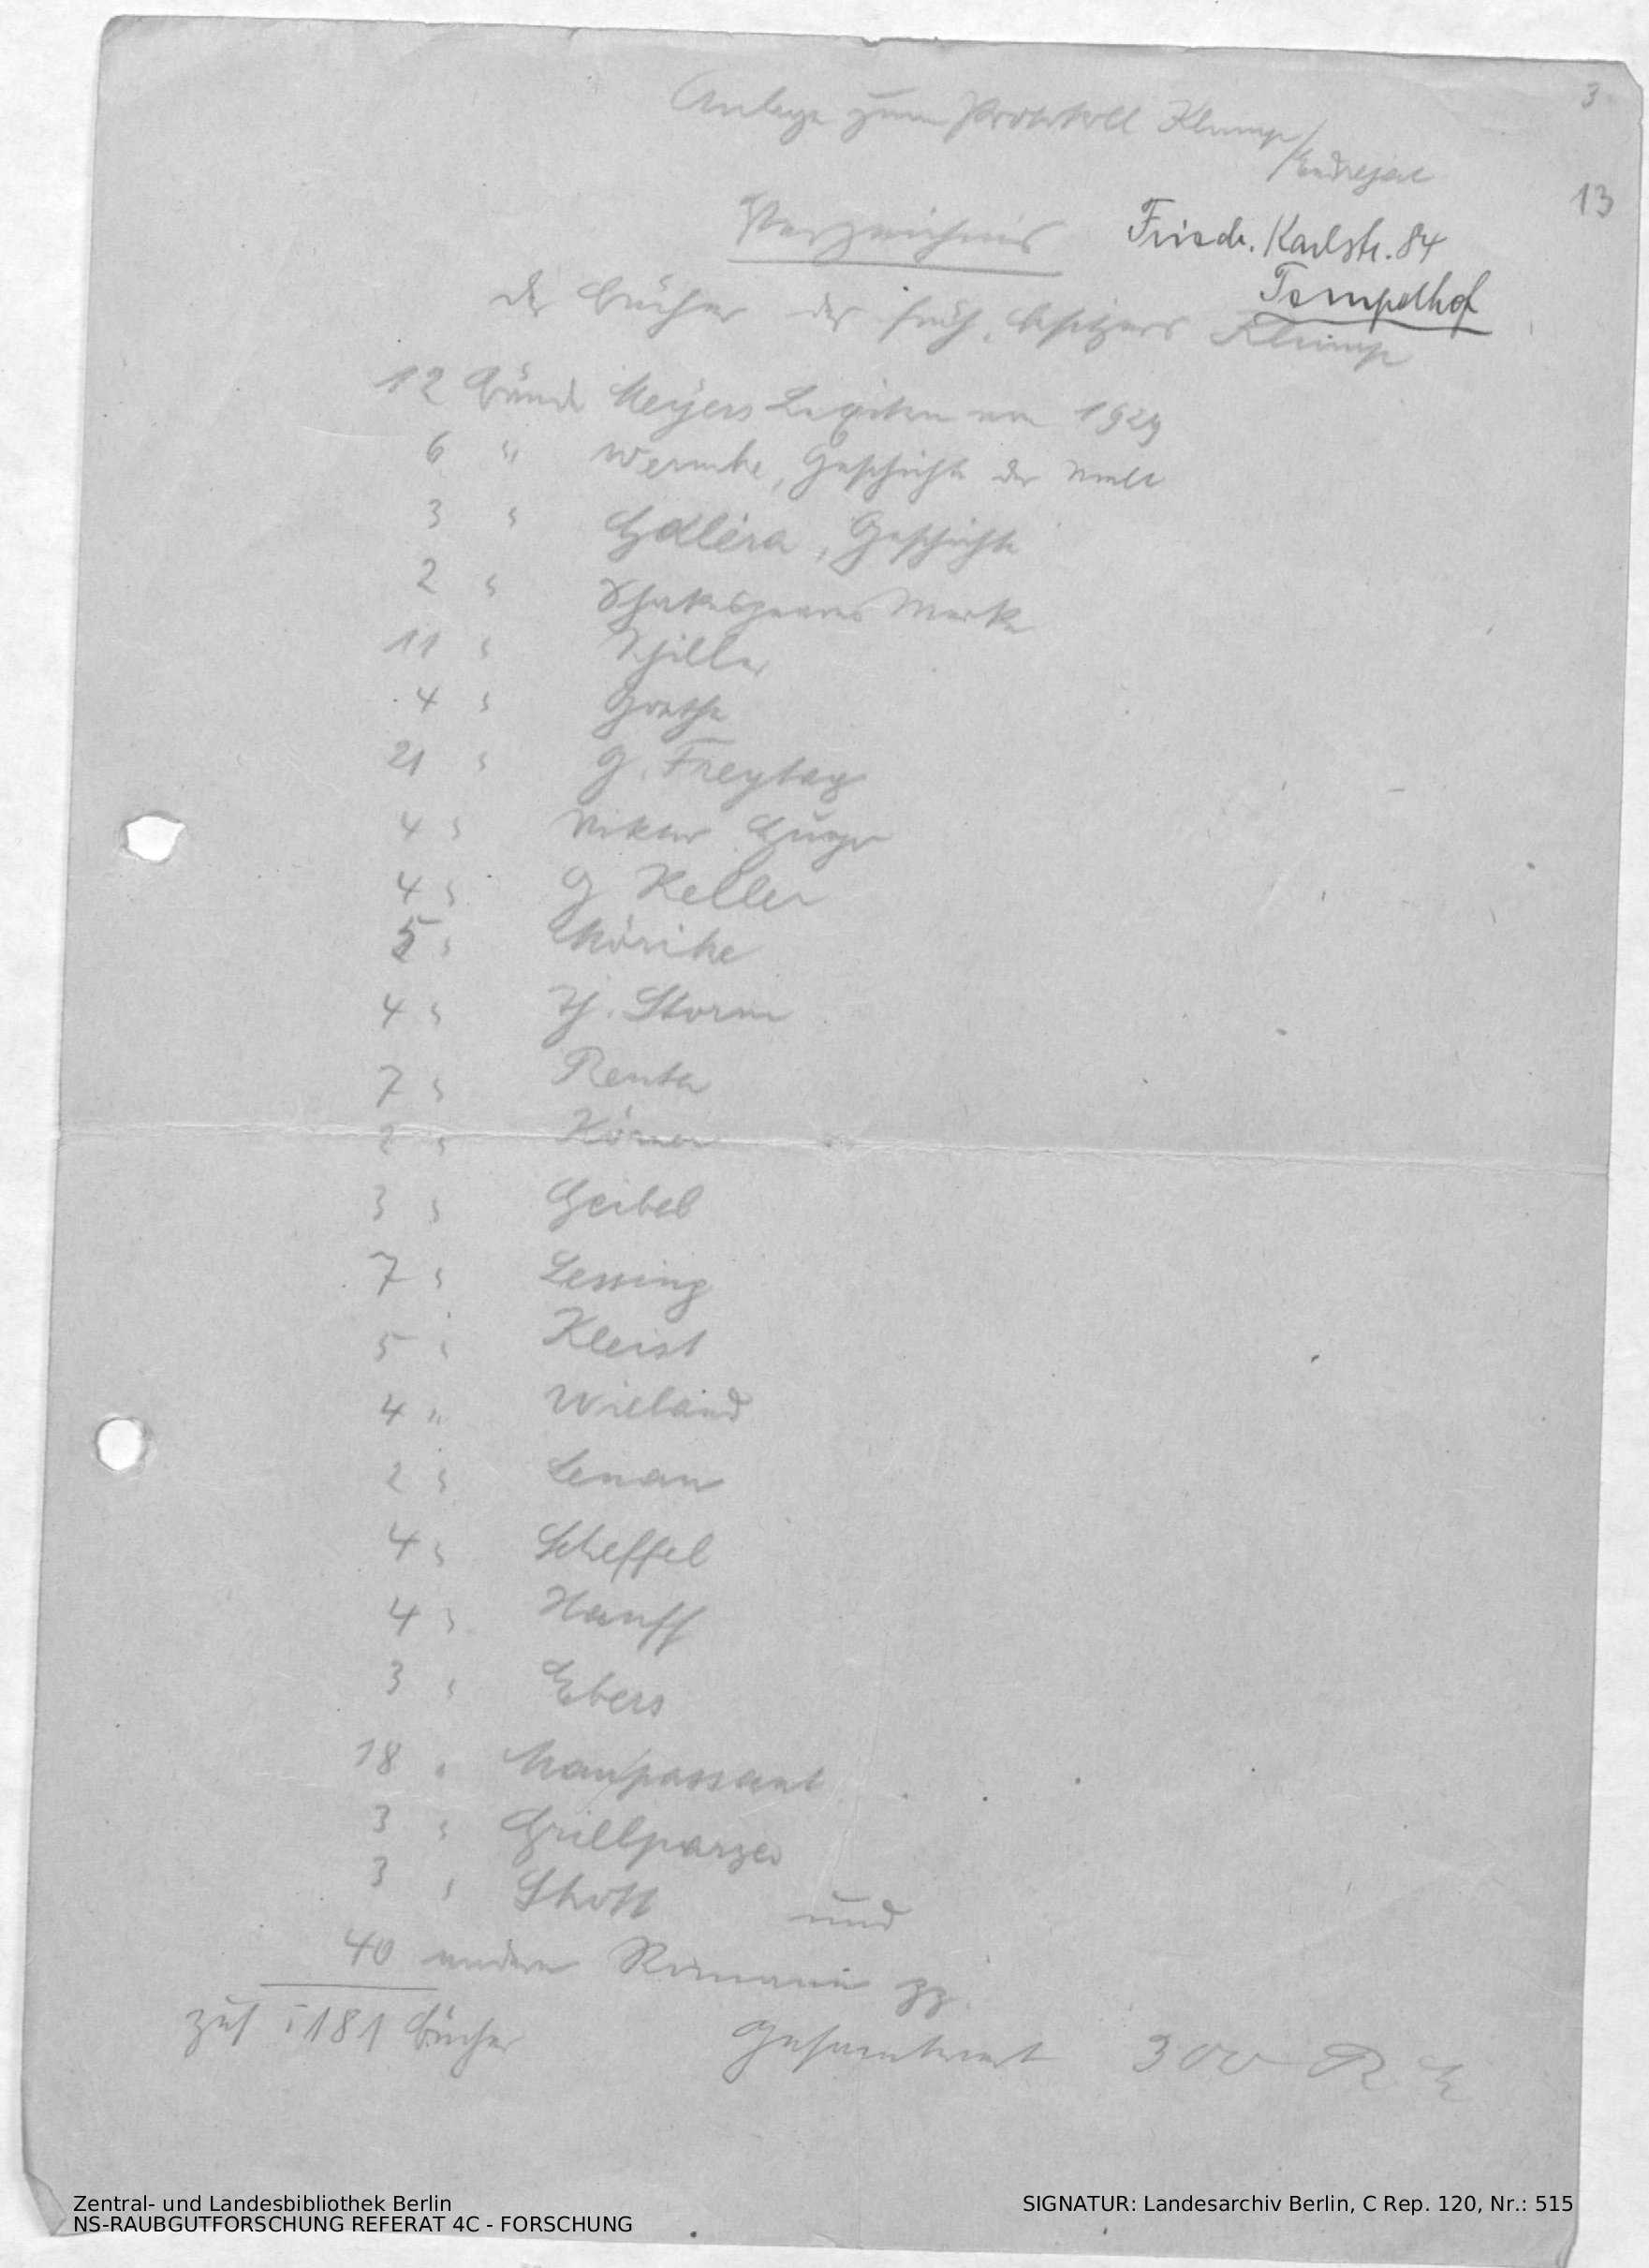 3
Anlage zum Protokoll Klump/
Endrejat
13
Verzeichnis Friedr. Karlstr. 84
Tempelhof
der Bücher des früh. Besitzers Klump
12 Bände Meyers Lexikon von 1929
6 " Wernike, Geschichte der Welt
3 " Geschichte
2 " Shakespeares Werke
11 " Schiller
4 " Goethe
21 " G. Freytag
4 " Viktor Hugo
4 " G Keller
5 " Mörike
4 " Th. Storm
7 " Reuter
2 " Körner
3 " Geibel
7 " Lessing
5 " Kleist
4 " Wieland
2 " Lenau
4 " Scheffel
4 " Hauff
3 " Ebers
18 " Maupassant
3 " Grillparzer
3 " und
40 andere Romane
zus 181 Bücher Gesamtwert 300 RM
Zentral- und Landesbibliothek Berlin
NS-RAUBGUTFORSCHUNG REFERAT 4C - FORSCHUNG
SIGNATUR: Landesarchiv Berlin, C Rep. 120, Nr.: 515